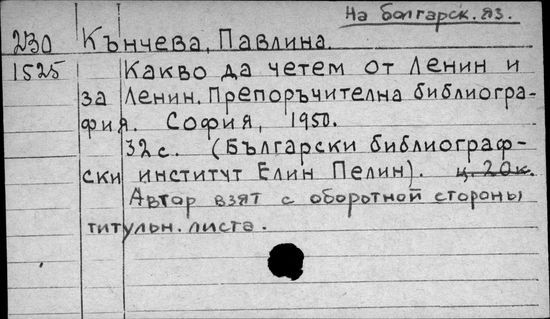 На болгарск. яз.
230 Кънчева, Павлина.
1525 Какво да четем от Ленин и
за Ленин. Препоръчителна библиогра-
фия. София, 1950.
32 с. (Български библиограф-
ски институт Елин Пелин). ц. 20к.
Автор взят с оборотной стороны
титульн. листа.